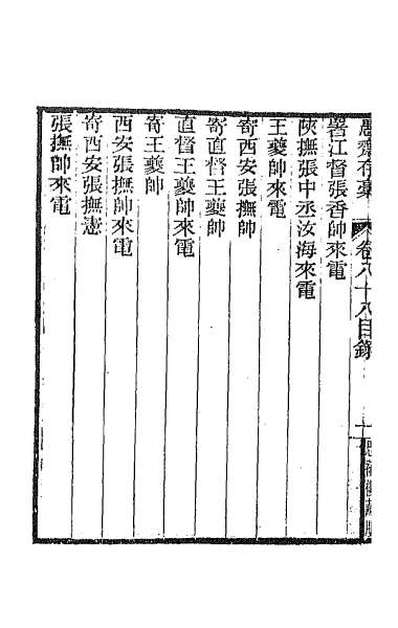 愚齋存稾
卷八十八目錄
署江督張香帥來電
陝撫張中丞汝海來電
王夔帥來電
寄西安張撫帥
寄直督王夔帥
直督王夔帥來電
寄王夔帥
西安張撫帥來電
寄西安張撫憲
張撫帥來電